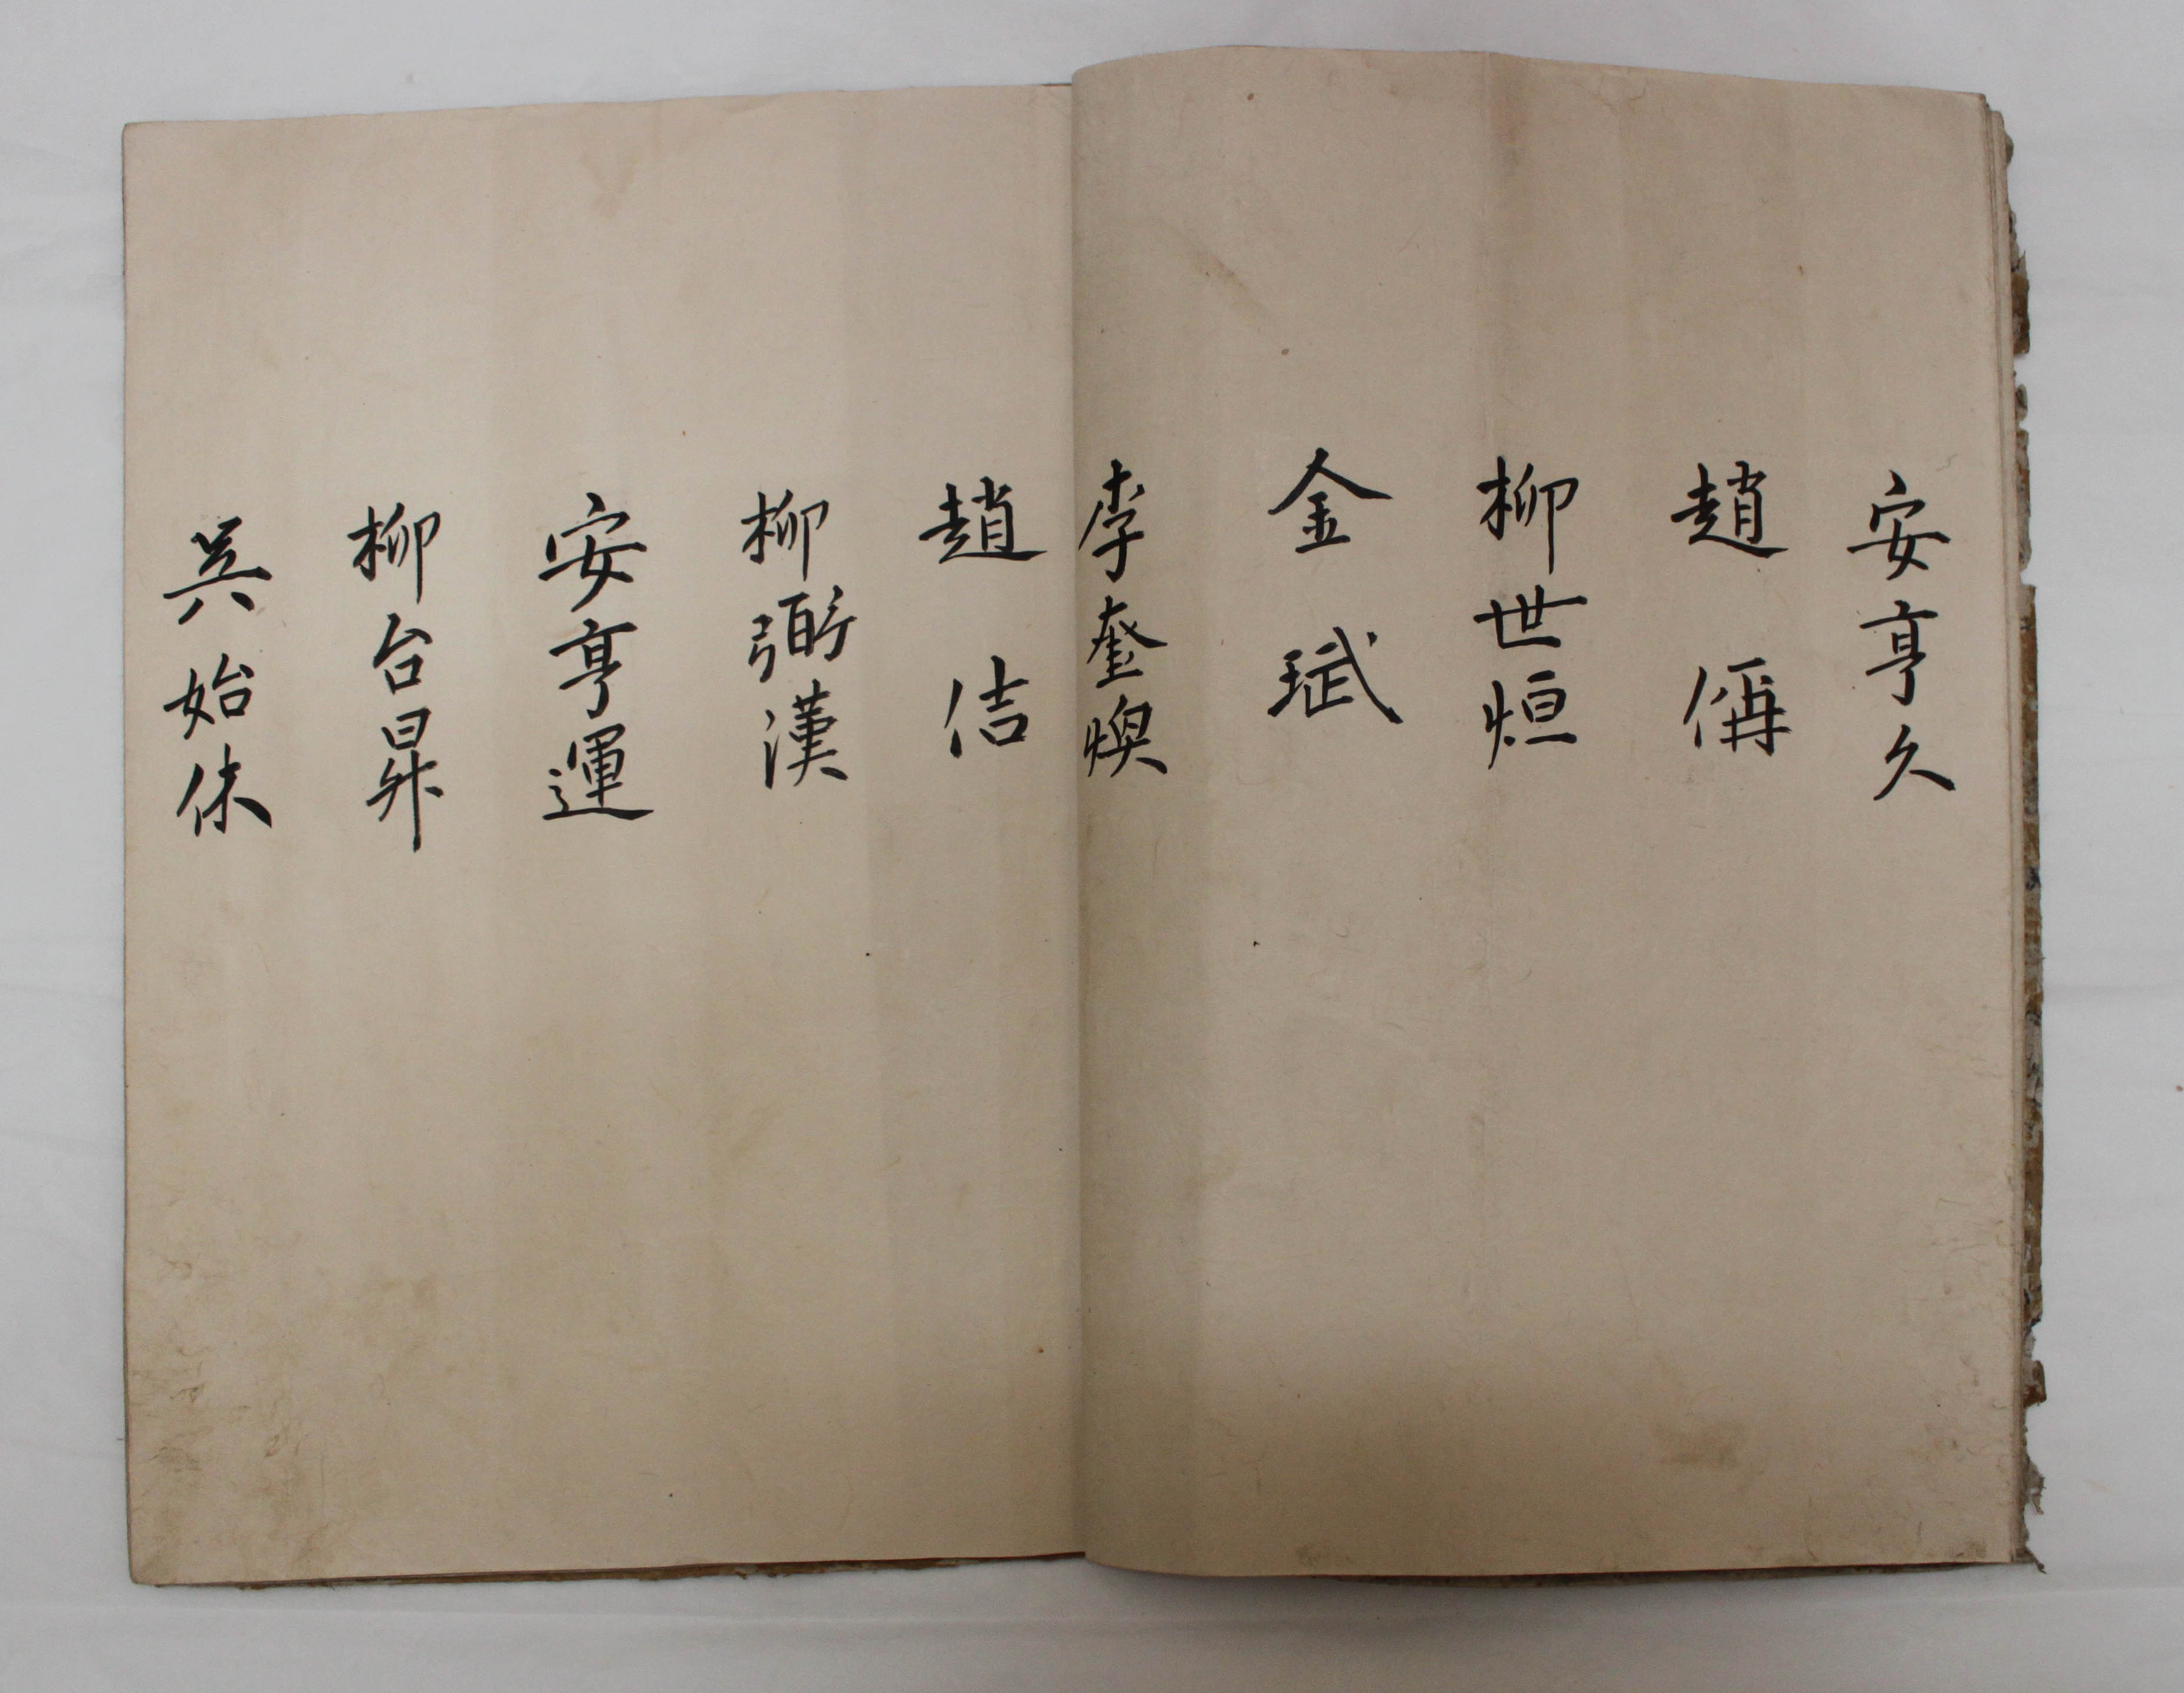 安亨久
趙偁
柳世烜
金珷
李奎煥
趙佶
柳弼漢
安亨運
柳台昇
吳始休